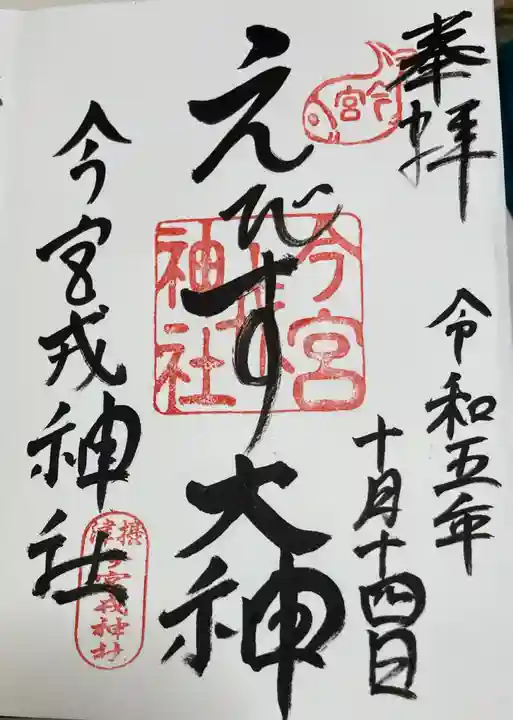 奉拝
令和五年
十月十四日
今宮
えびす大神
今宮戎神社
今宮戎神社
摂津
今宮戎神社